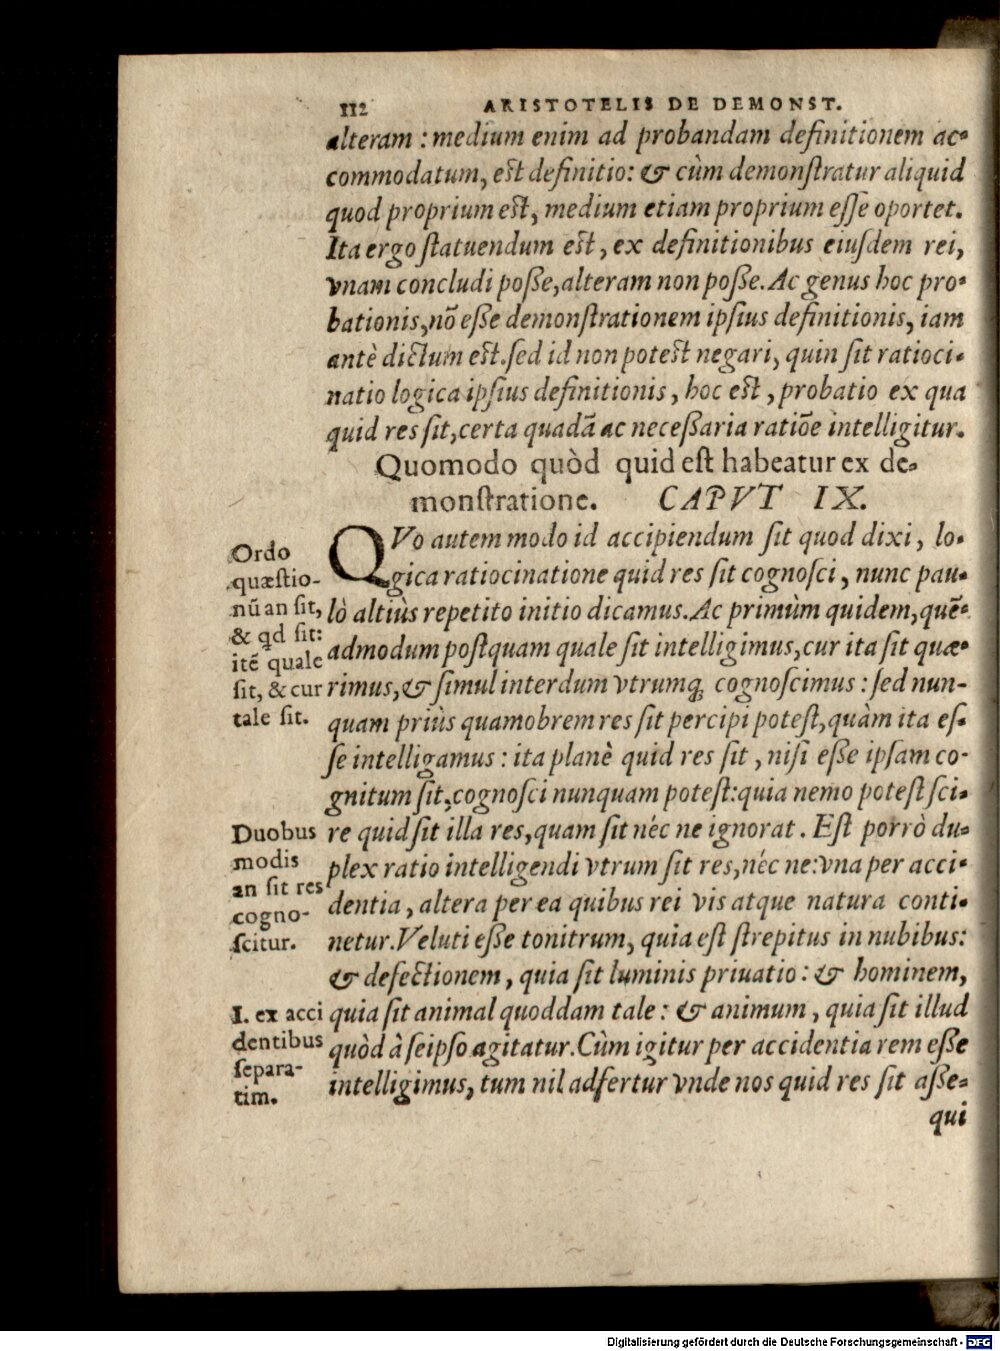 112 ARISTOTELIS DE DEMONST.
alteram : medium enim ad probandam definitionem ac-
commodatum, est definitio: & cùm demonſtratur aliquid
quod proprium est, medium etiam proprium eſſe oportet.
Ita ergo ſtatuendum est, ex definitionibus eiuſdem rei,
vnam concludi poſſe, alteram non poſſe. Ac genus hoc pro-
bationis, nõ eſſe demonſtrationem ipſius definitionis, iam
antè dictum est. ſed id non potest negari, quin ſit ratioci-
natio logica ipſius definitionis, hoc est, probatio ex qua
quid res ſit, certa quadã ac neceſſaria ratiõe intelligitur.
Quomodo quòd quid eſt habeatur ex de-
monſtratione. CAPVT IX.
QVo autem modo id accipiendum ſit quod dixi, lo-
gica ratiocinatione quid res ſit cognoſci, nunc pau-
lò altiùs repetito initio dicamus. Ac primùm quidem, quẽ-
admodum poſtquam quale ſit intelligimus, cur ita ſit quæ-
rimus, & ſimul interdum vtrumq; cognoſcimus : ſed nun-
quam priùs quamobrem res ſit percipi poteſt, quàm ita eſ-
ſe intelligamus : ita planè quid res ſit, niſi eſſe ipſam co-
gnitum ſit, cognoſci nunquam poteſt: quia nemo poteſt ſci-
re quid ſit illa res, quam ſit néc ne ignorat. Eſt porrò du-
plex ratio intelligendi vtrum ſit res, néc ne: vna per acci-
dentia, altera per ea quibus rei vis atque natura conti-
netur. Veluti eſſe tonitrum, quia eſt ſtrepitus in nubibus:
& defectionem, quia ſit luminis priuatio : & hominem,
quia ſit animal quoddam tale : & animum, quia ſit illud
quòd à ſeipſo agitatur. Cùm igitur per accidentia rem eſſe
intelligimus, tum nil adfertur vnde nos quid res ſit aſſe-
qui
Ordo
quæſtio-
nũ an ſit,
& qd ſit:
itẽ quale
ſit, & cur
tale ſit.
Duobus
modis
an ſit res
cogno-
ſcitur.
I. ex acci
dentibus
ſepara-
tim.
Digitalisierung gefördert durch die Deutsche Forschungsgemeinschaft - DFG